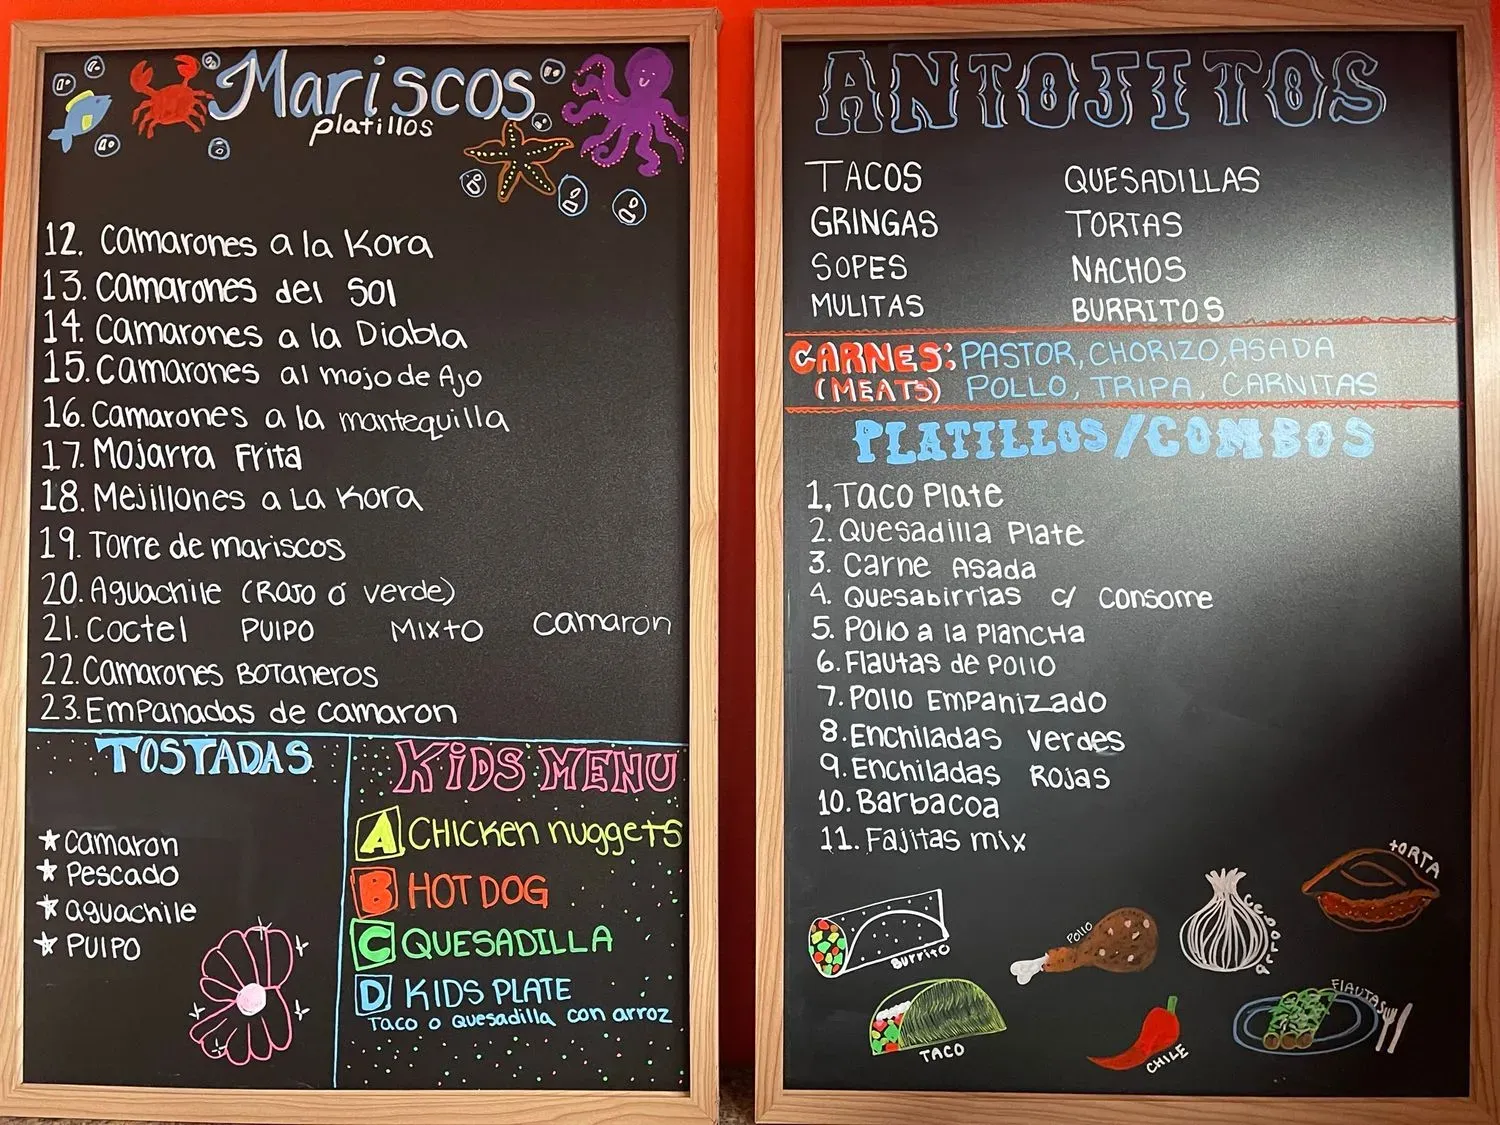 Mariscos
platillos
12. Camarones a la Kora
13. Camarones del Sol
14. Camarones a la Diabla
15. Camarones al mojo de Ajo
16. Camarones a la mantequilla
17. Mojarra Frita
18. Mejillones a La Kora
19. Torre de mariscos
20. Aguachile (Rojo ó verde)
21. Coctel PUlPO MixtO Camaron
22. Camarones BOTaneros
23. EmPanadas de camaron
TOSTADAS
★ Camaron
★ Pescado
★ aguachile
★ PUlPO
KiDS MENU
A CHICKen nuggets
B HOT DOG
C QUESADILLA
D KIDS PLATE
Taco o Quesadilla con arroz
ANTOJITOS
TACOS QUESADILLAS
GRINGAS TORTAS
SOPES NACHOS
MULITAS BURRITOS
CARNES: PASTOR, CHORIZO, ASADA
(MEATS) POLLO, TRIPA, CARNITAS
PLATILLOS/COMBOS
1. Taco Plate
2. Quesadilla Plate
3. Carne Asada
4. Quesabirrias c/ Consome
5. Pollo a la Plancha
6. Flautas de POllO
7. Pollo Empanizado
8. Enchiladas verdes
9. Enchiladas Rojas
10. Barbacoa
11. Fajitas mix
Burrito
POllO
TORTA
TACO
CHILE
FlAUTAS